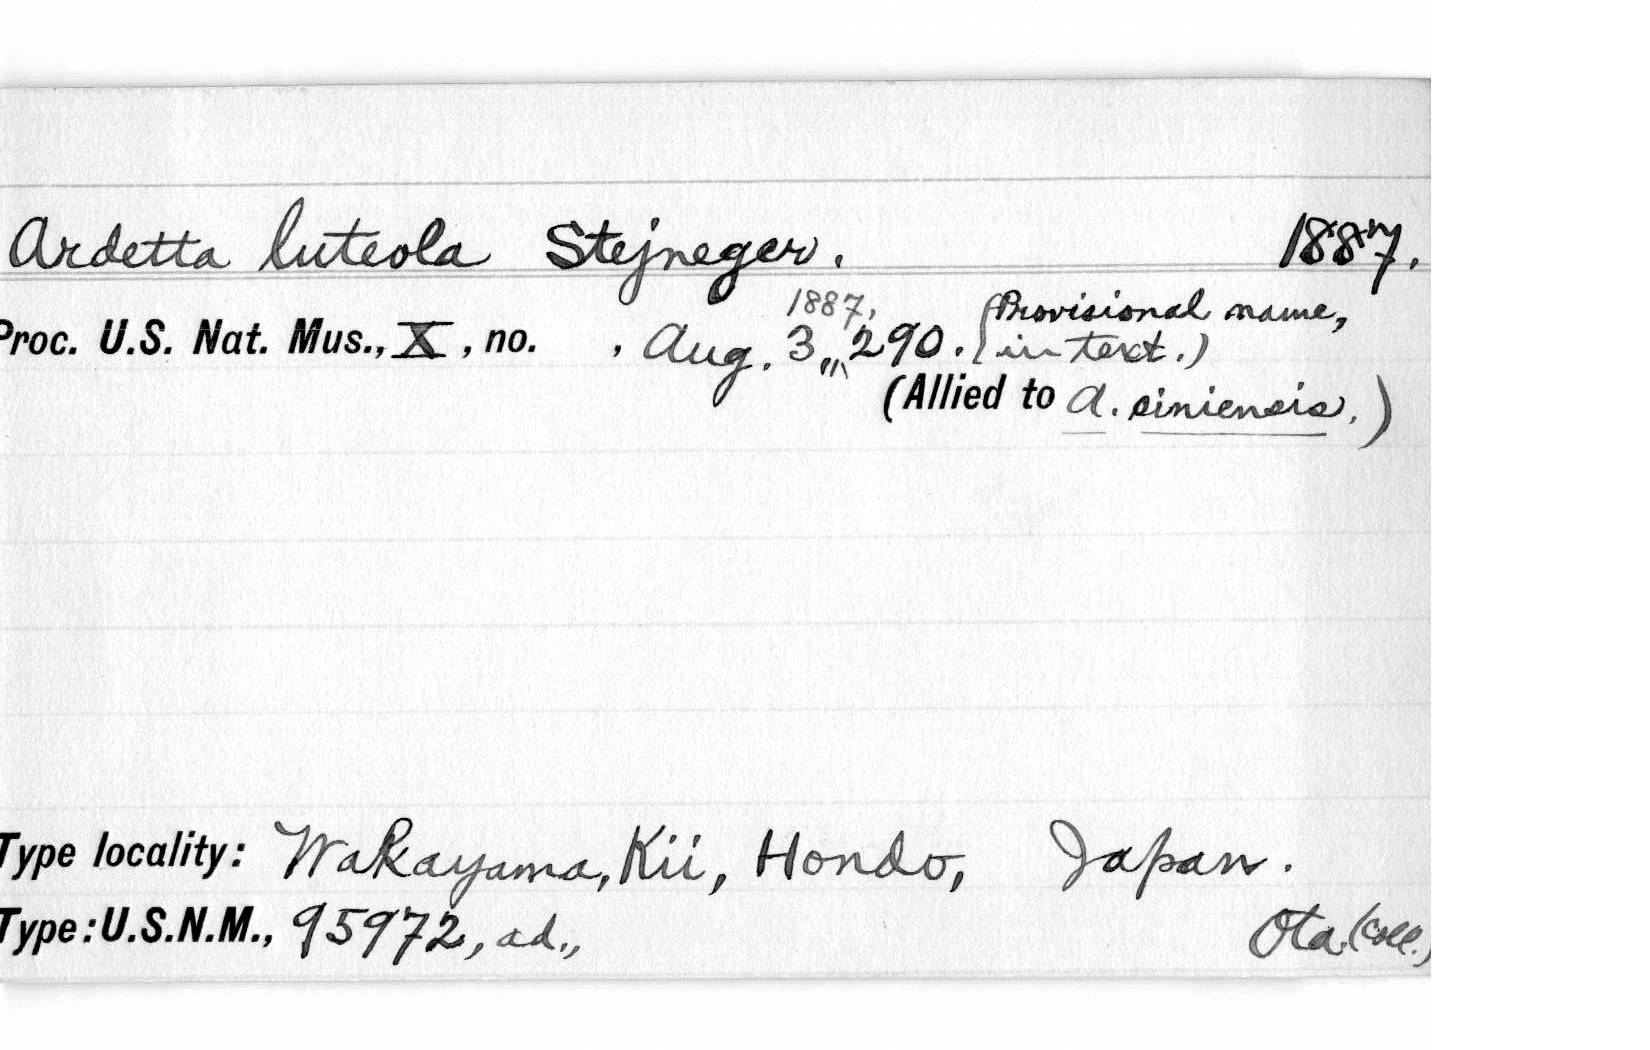 Ardetta luteola Stejneger. 1887.
Proc. U.S. Nat. Mus., X, no. , Aug. 3, 1887, 290. (Provisional name,
in text.)
(Allied to A. siniensis.)
Type locality: Wakayama, Kii, Hondo, Japan.
Type: U.S.N.M., 95972, ad., Ota (coll.)